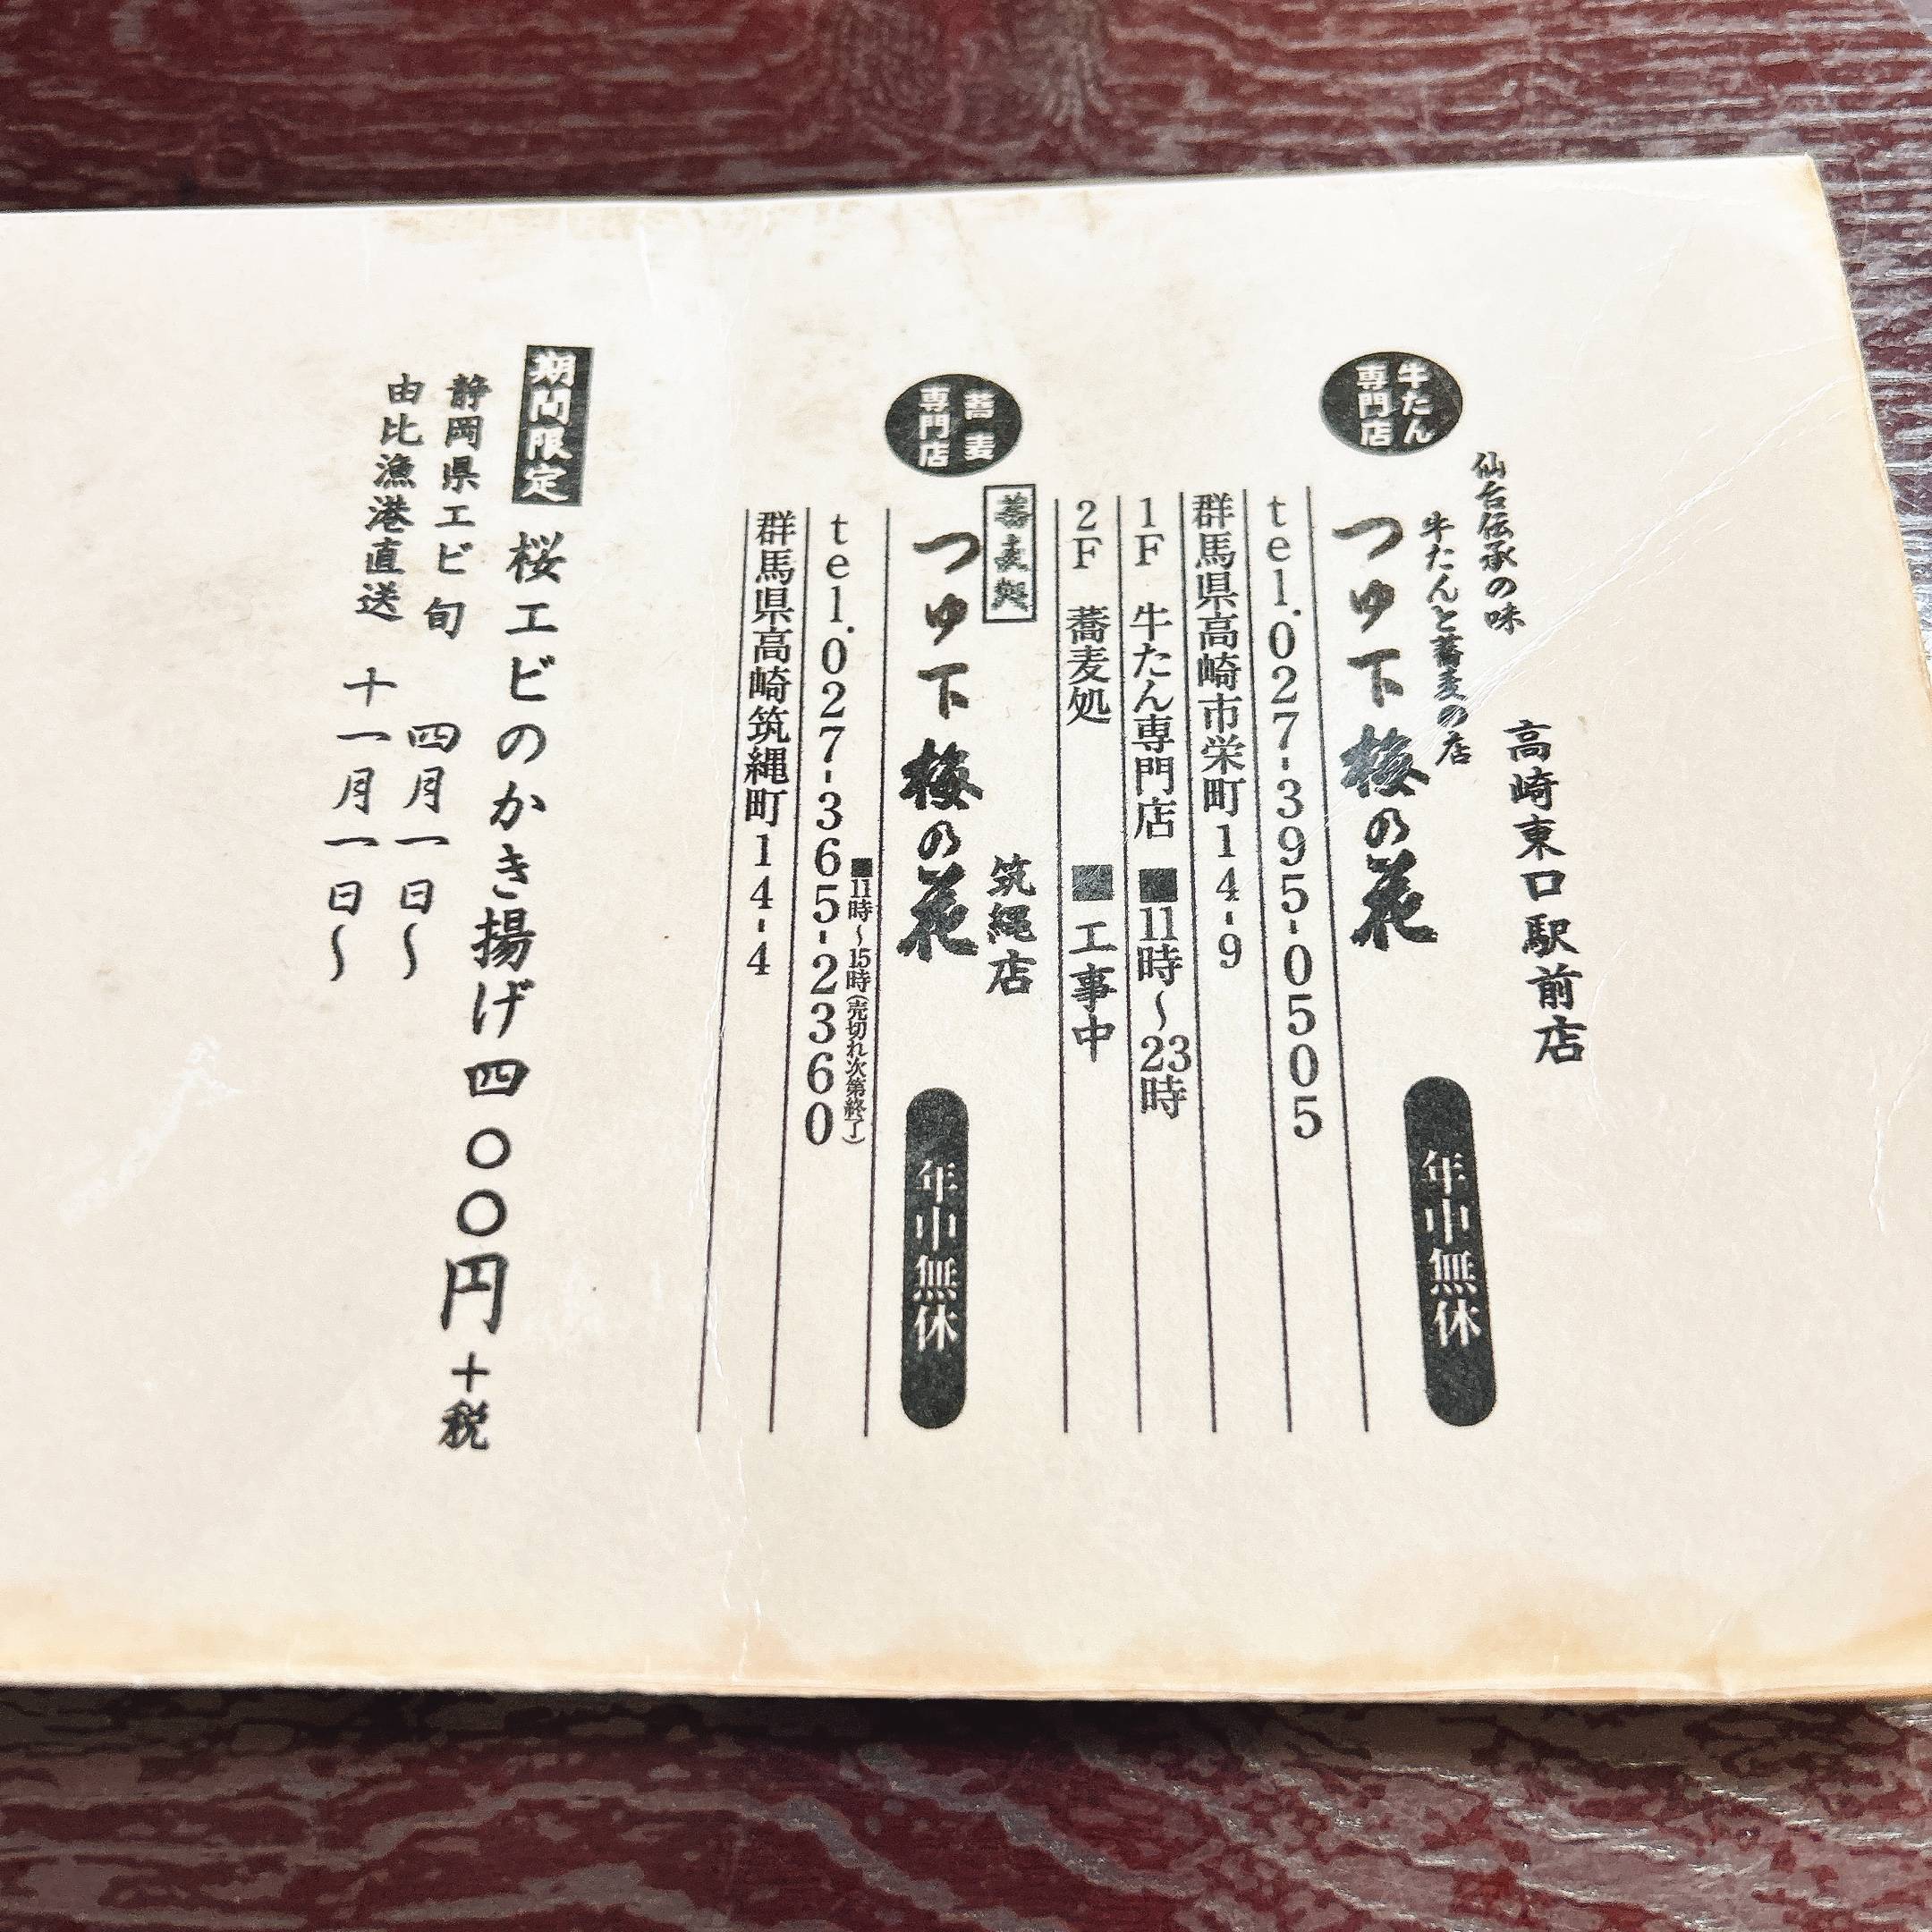 高崎東口駅前店
仙台伝承の味
牛たんと蕎麦の店
牛たん
専門店
つゆ下梅の花
年中無休
tel.027-395-0505
群馬県高崎市栄町14-9
1F 牛たん専門店 ■11時〜23時
2F 蕎麦処 ■工事中
筑縄店
蕎麦処
蕎麦
専門店
つゆ下梅の花
年中無休
■11時〜15時(売切れ次第終了)
tel.027-365-2360
群馬県高崎筑縄町14-4
期間限定
桜エビのかき揚げ四〇〇円+税
静岡県エビ旬 四月一日〜
由比漁港直送 十一月一日〜